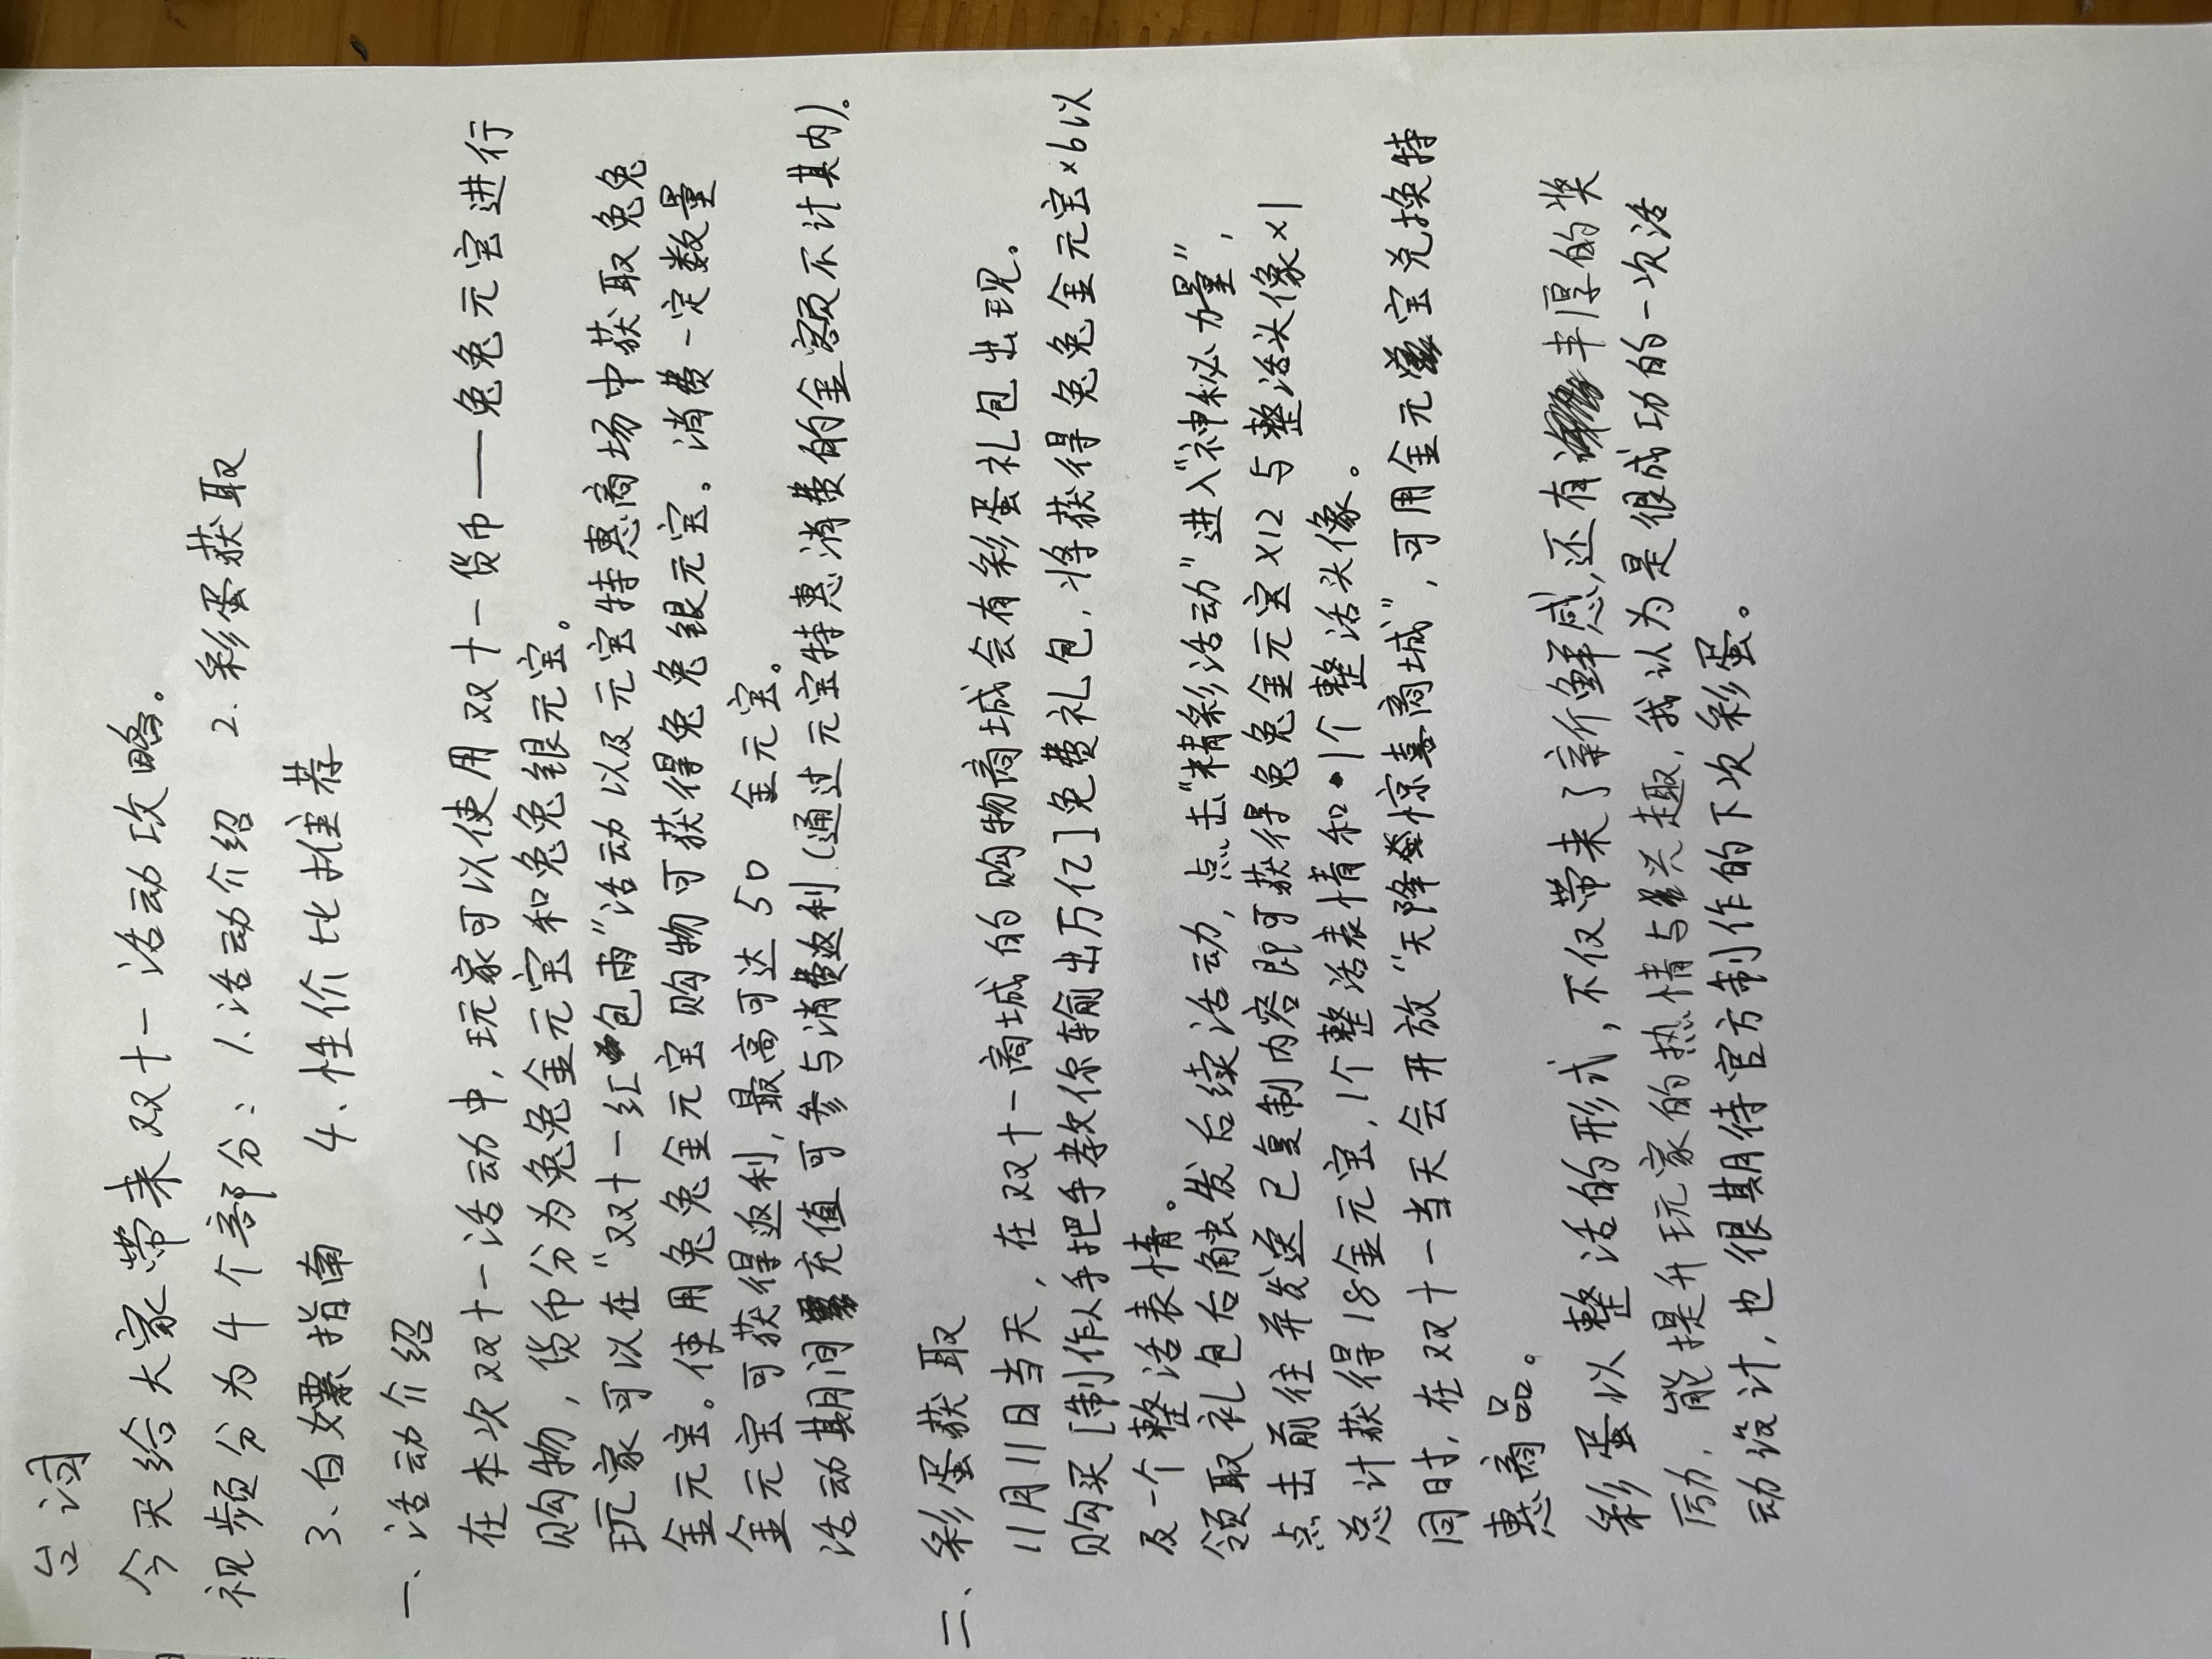 台词
今天给大家带来双十一活动攻略。
视频分为4个部分：1.活动介绍 2.彩蛋获取
3、白嫖指南 4、性价比推荐
一、活动介绍
在本次双十一活动中，玩家可以使用双十一货币——兔兔元宝进行
购物，货币分为兔兔金元宝和兔兔银元宝。
玩家可以在“双十一红包雨”活动以及元宝特惠商场中获取兔兔
金元宝。使用兔兔金元宝购物可获得兔兔银元宝。消费一定数量
金元宝可获得返利，最高可达50 金元宝。
活动期间充值可参与消费返利（通过元宝特惠消费的金额不计其内）。
二、彩蛋获取
11月11日当天，在双十一商城的购物商城会有彩蛋礼包出现。
购买[制作从手把手教你输出万亿]免费礼包，将获得兔兔金元宝×6以
及一个整活表情。
领取礼包后触发后续活动，点击“精彩活动”进入“神秘力量”，
点击前往并发送已复制内容即可获得兔兔金元宝×12与整活头像×1
总计获得18金元宝，1个整活表情和1个整活头像。
同时，在双十一当天会开放“天降惊喜商城”，可用金元宝兑换特
惠商品。
彩蛋以整活的形式，不仅带来了新鲜感，还有丰厚的奖
励，能提升玩家的热情与兴趣，我认为是很成功的一次活
动设计，也很期待官方制作的下次彩蛋。